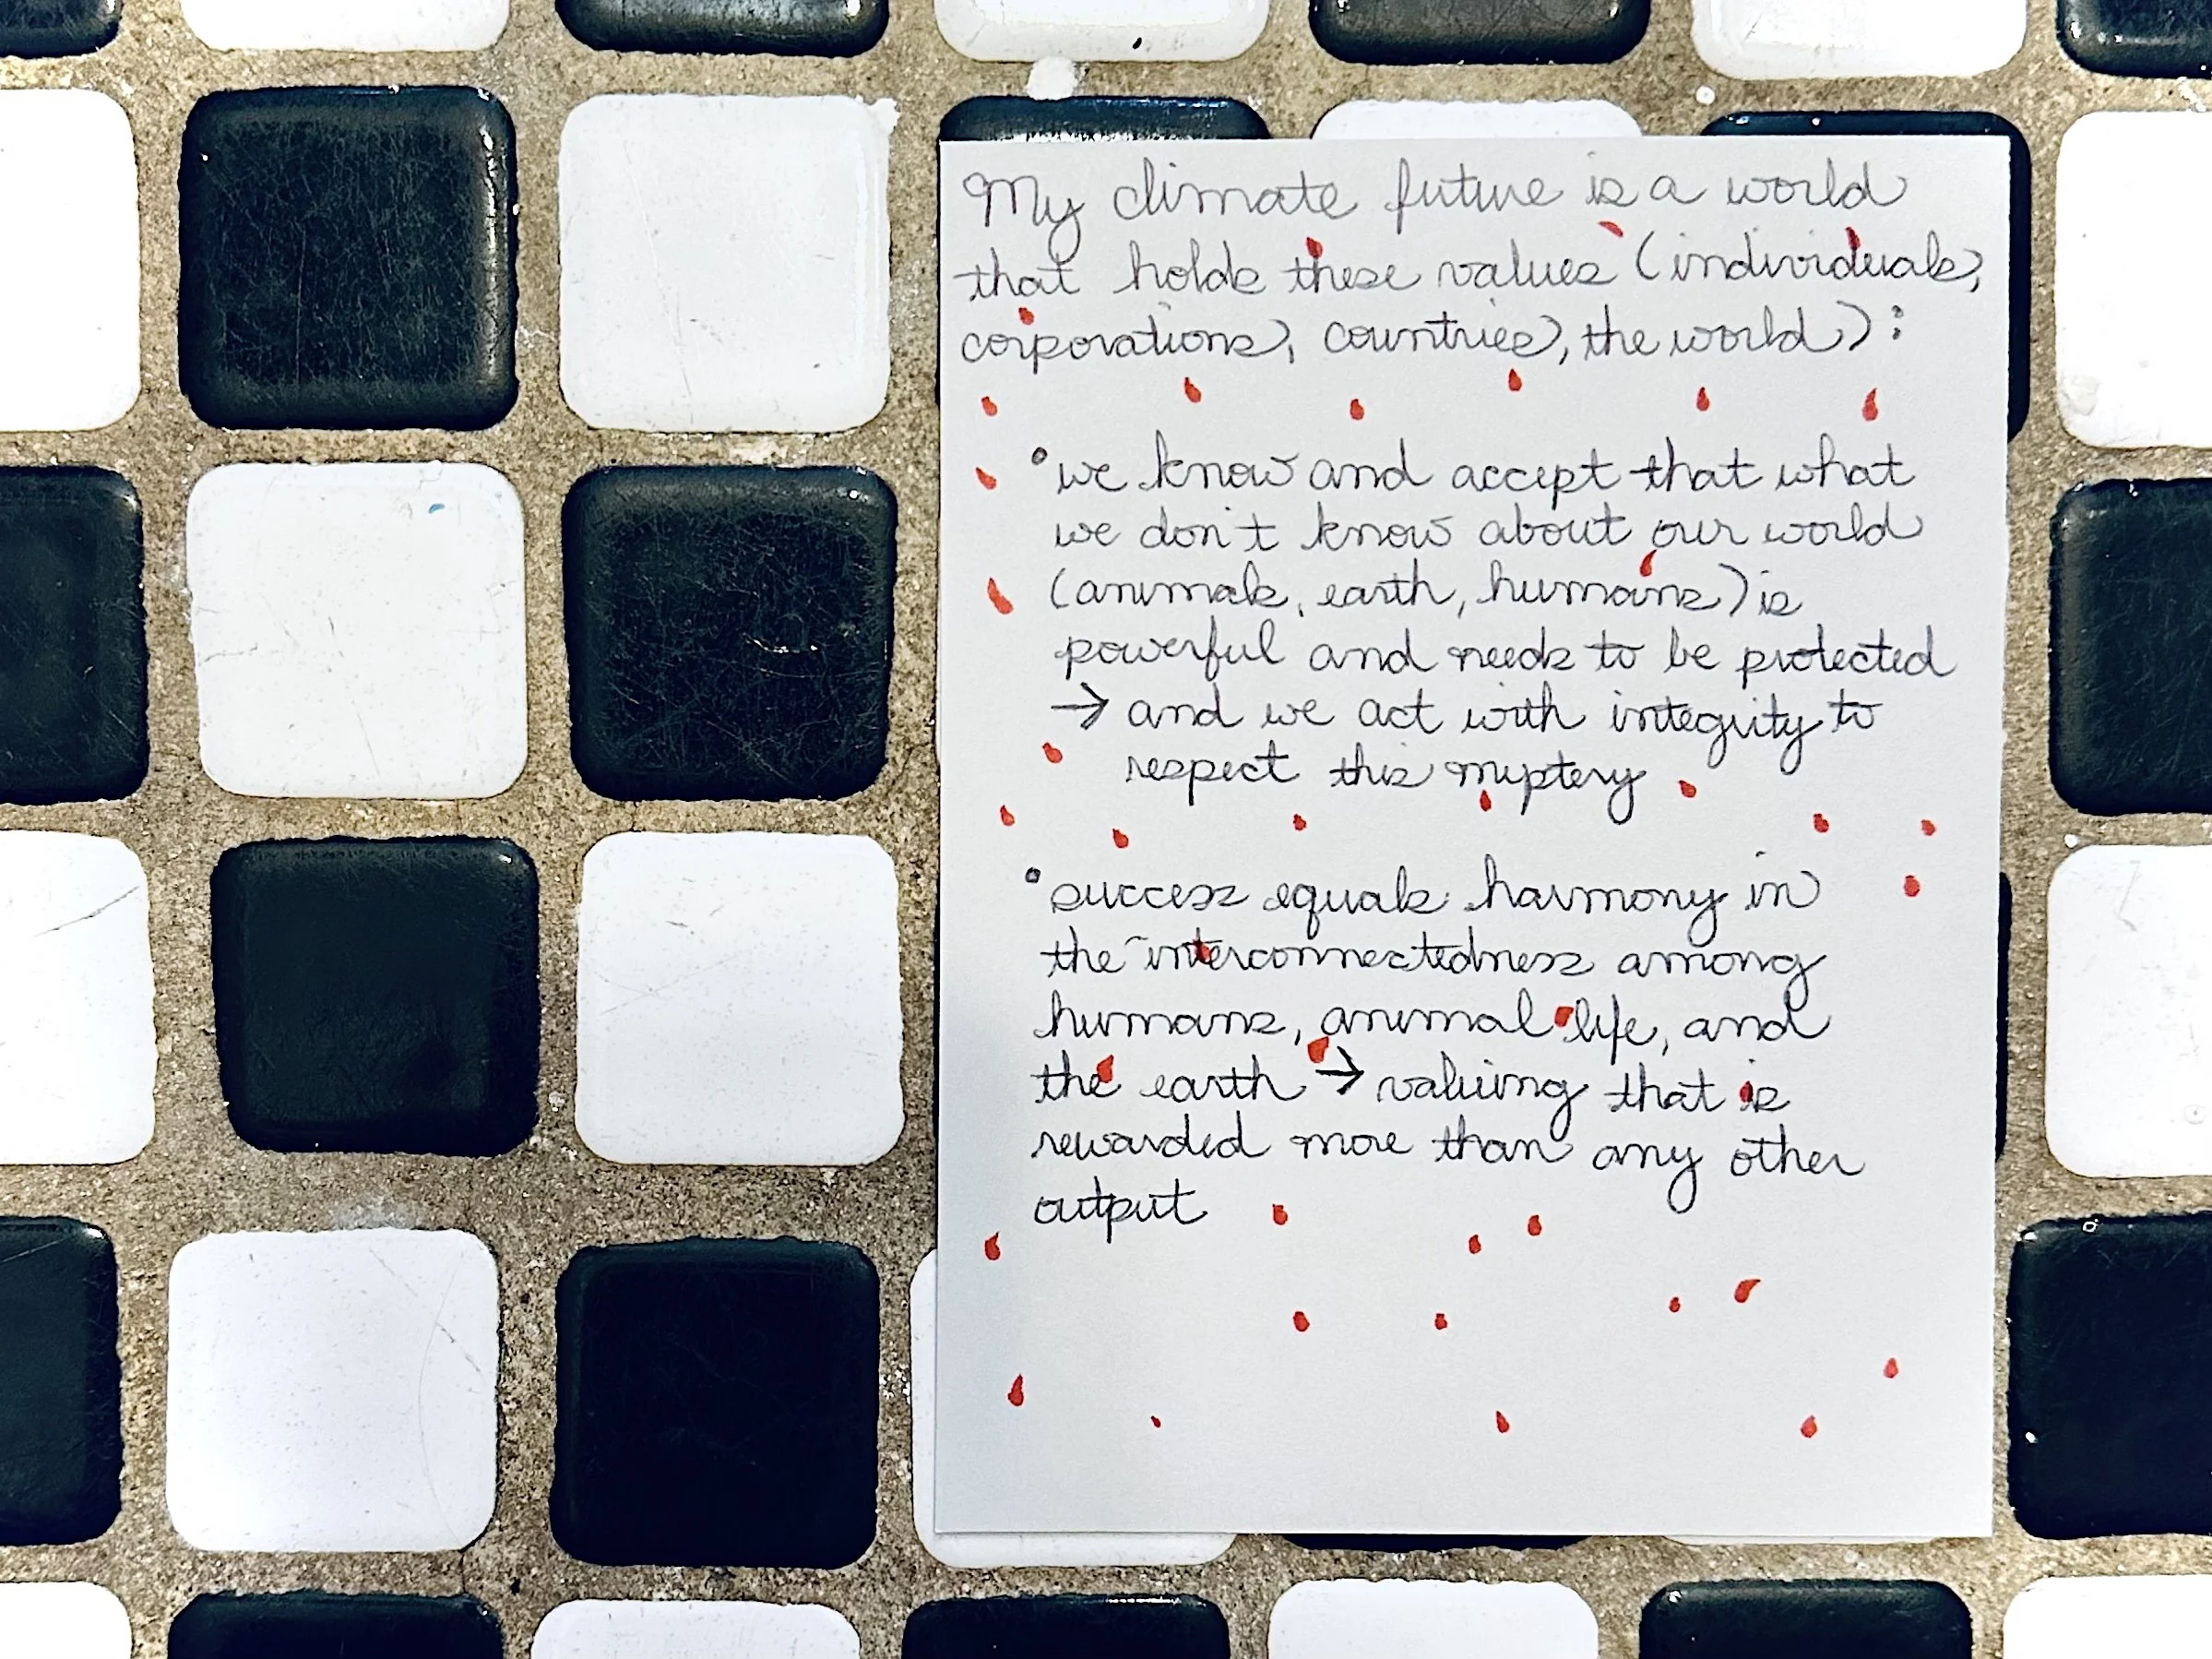 My climate future is a world
that holds these values (individuals,
corporations, countries, the world):
• we know and accept that what
we don't know about our world
(animals, earth, humans) is
powerful and needs to be protected
→ and we act with integrity to
respect this mystery
• success equals harmony in
the interconnectedness among
humans, animal life, and
the earth → valuing that is
rewarded more than any other
output